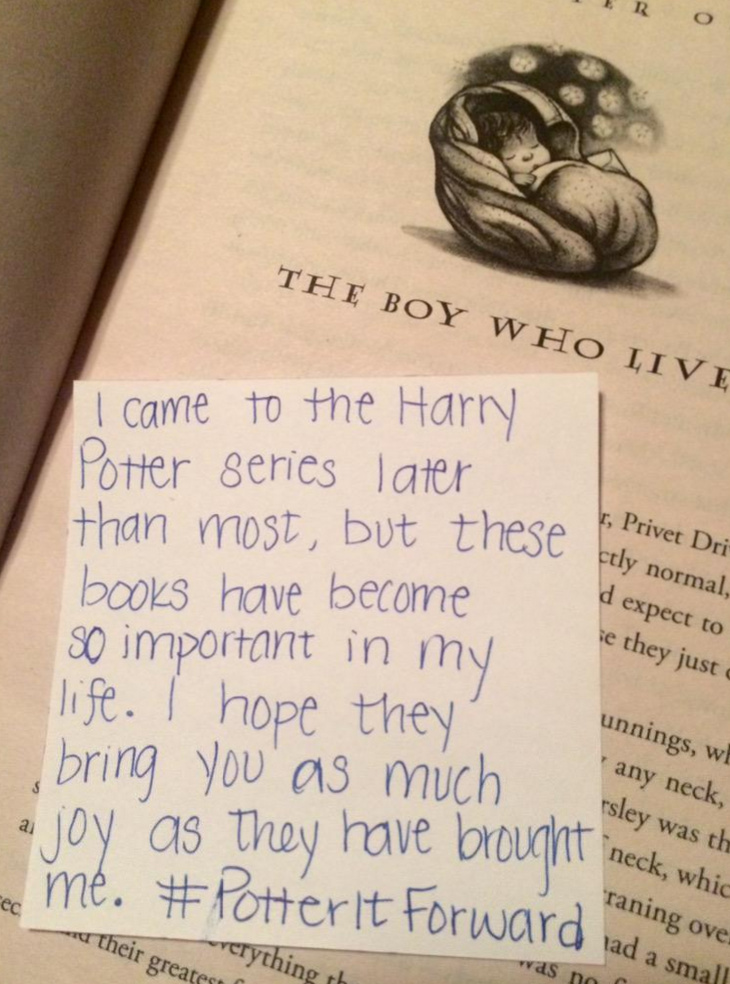 THE BOY WHO LIVE
I came to the Harry
Potter series later
than most, but these
books have become
so important in my
life. I hope they
bring you as much
joy as they have brought
me. #PotterItForward
r, Privet Dri
ctly normal,
d expect to
se they just
unnings, wh
any neck,
rsley was th
neck, whic
raning ove
had a small
was no
everything th
their greatest